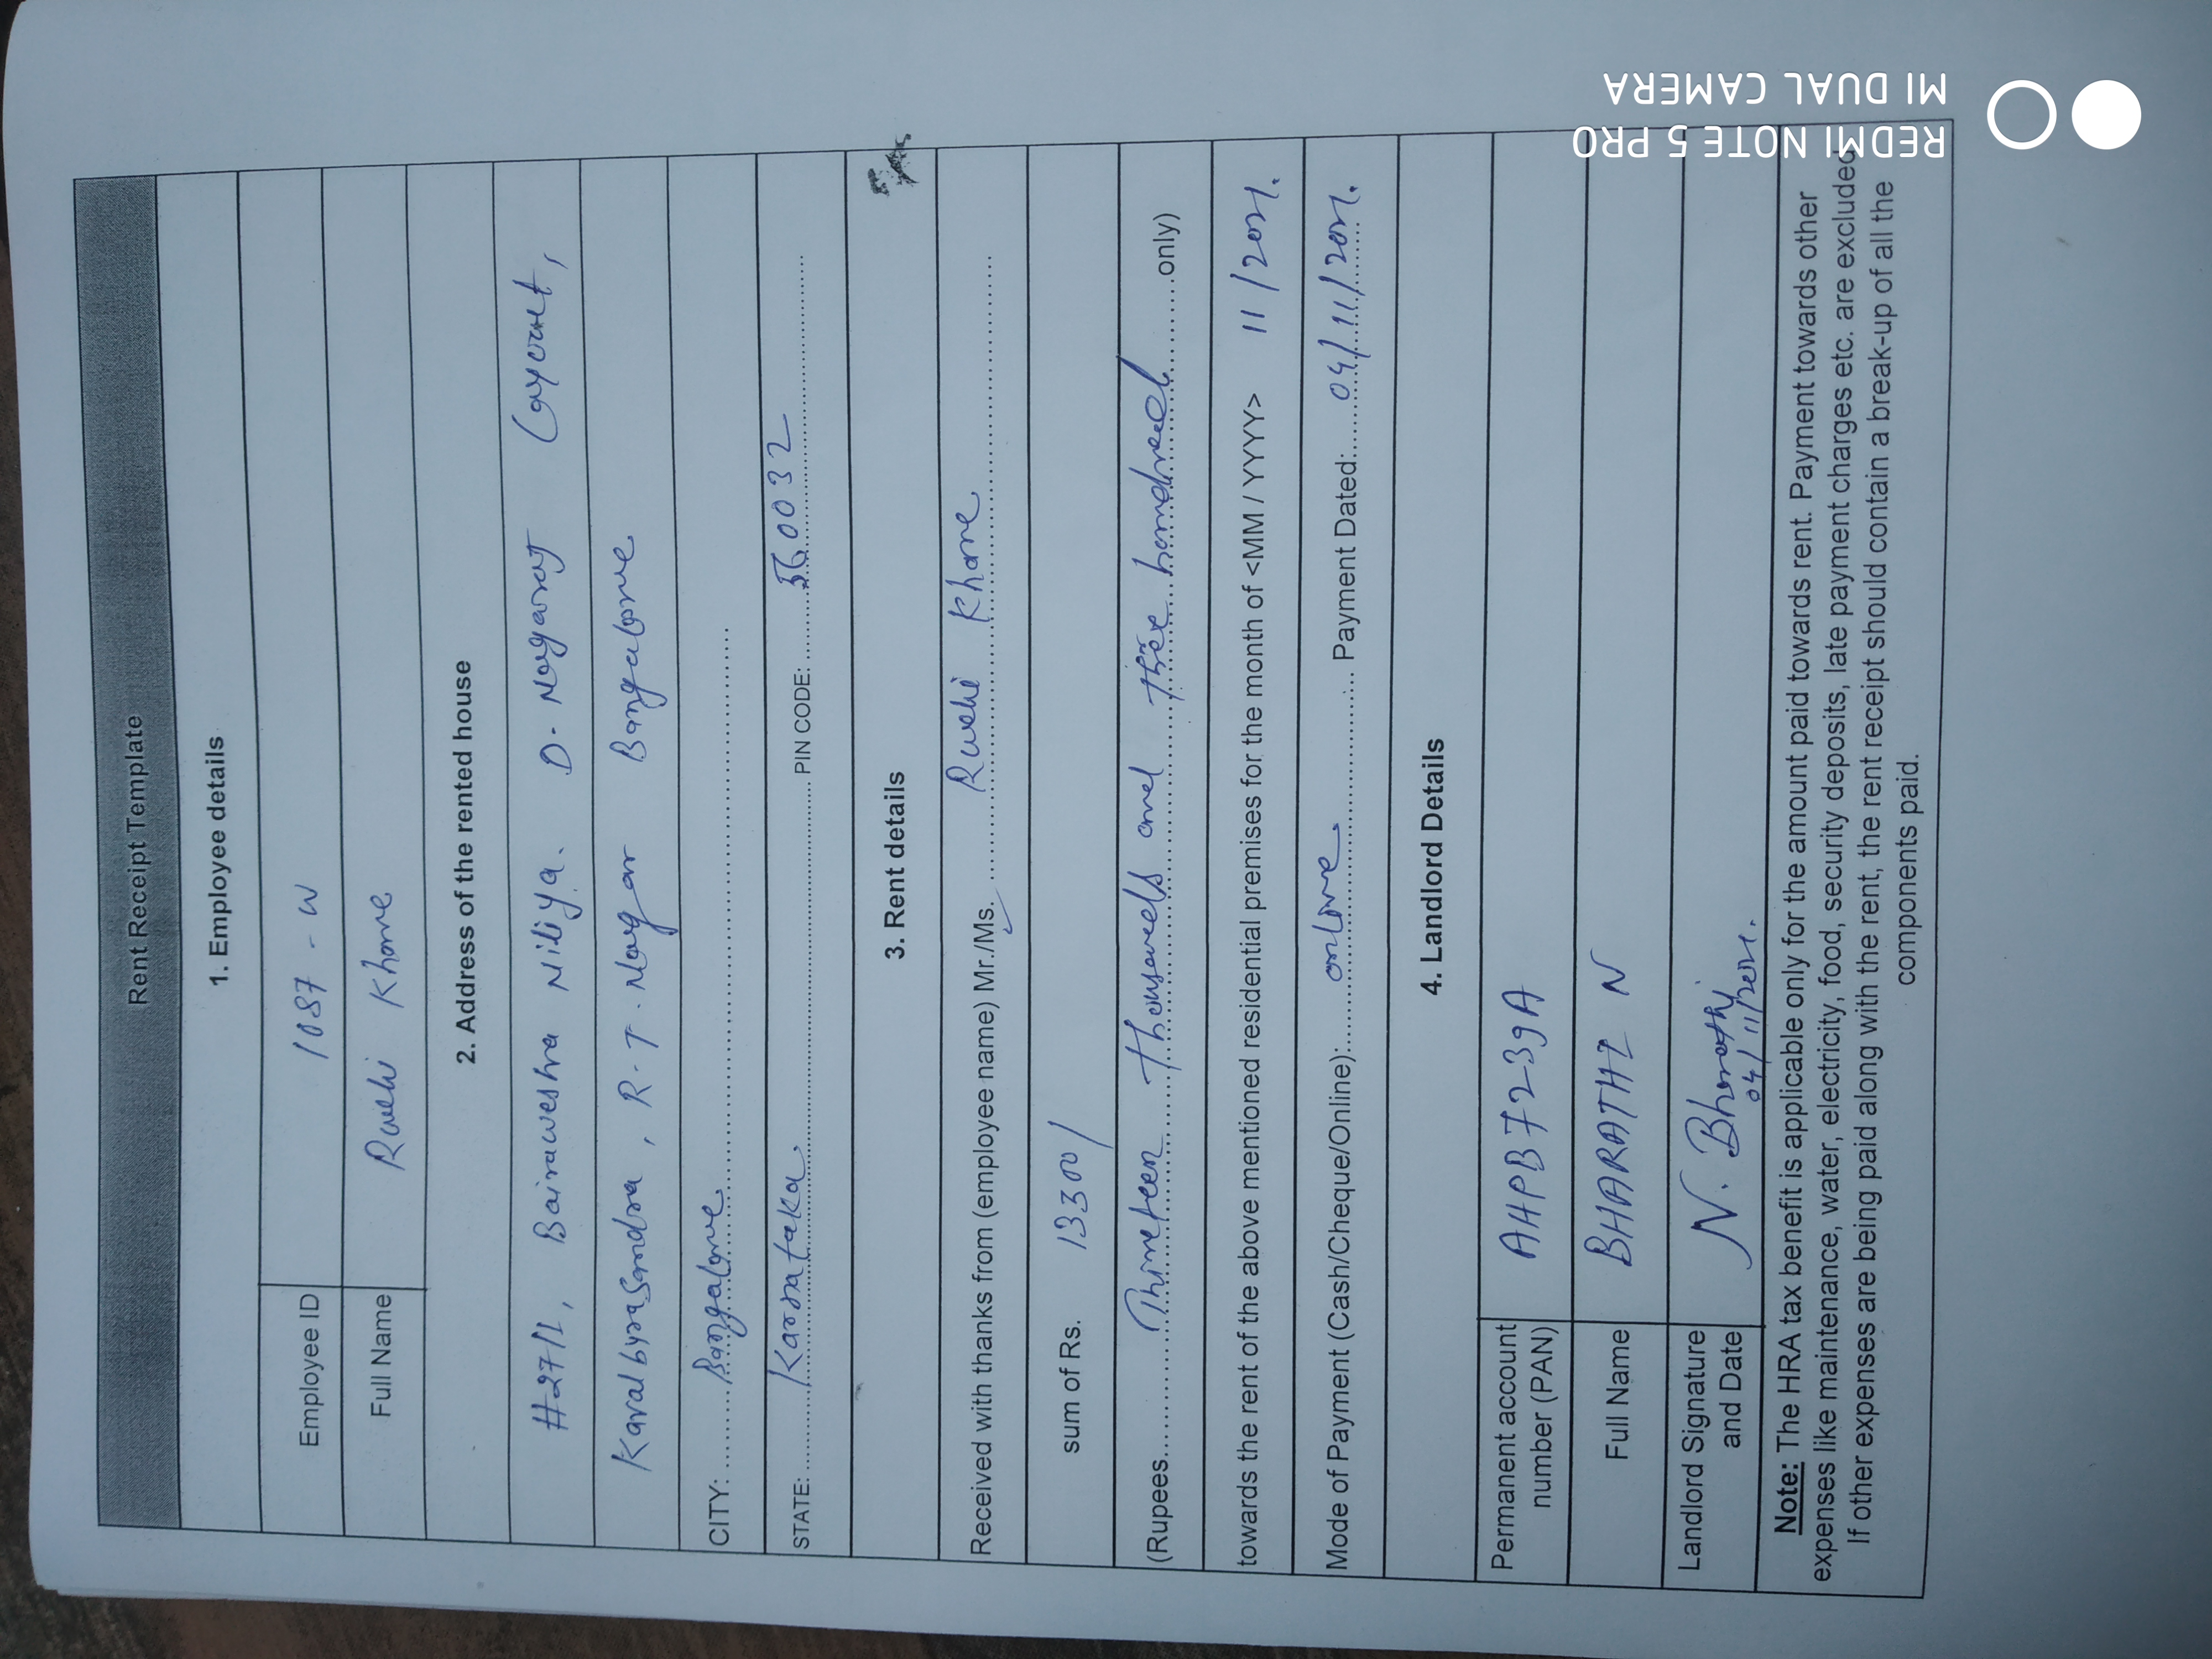 Rent Receipt Template
1. Employee details
Employee ID 1087 - W
Full Name Rushi Khome
2. Address of the rented house
#27/1, Bairaweshra Niliya. D. Nagarat Layout,
Kavalbyrasandra, R.T. Nagar Bangalore
CITY: ........Bangalore.................................................
STATE: ..........Karnataka............................................ PIN CODE: ........560032....................
3. Rent details
Received with thanks from (employee name) Mr./Ms. ..........Rushi Khome..........................
sum of Rs. 13300/
(Rupees............Thirteen thousand and three hundred............only)
towards the rent of the above mentioned residential premises for the month of <MM / YYYY> 11/2021.
Mode of Payment (Cash/Cheque/Online):......online............... Payment Dated:......04/11/2021.
4. Landlord Details
Permanent account number (PAN) AHPB7239A
Full Name BHARATHI N
Landlord Signature and Date N. Bharathi
04/11/2021.
Note: The HRA tax benefit is applicable only for the amount paid towards rent. Payment towards other
expenses like maintenance, water, electricity, food, security deposits, late payment charges etc. are excluded
If other expenses are being paid along with the rent, the rent receipt should contain a break-up of all the
components paid.
REDMI NOTE 5 PRO
MI DUAL CAMERA